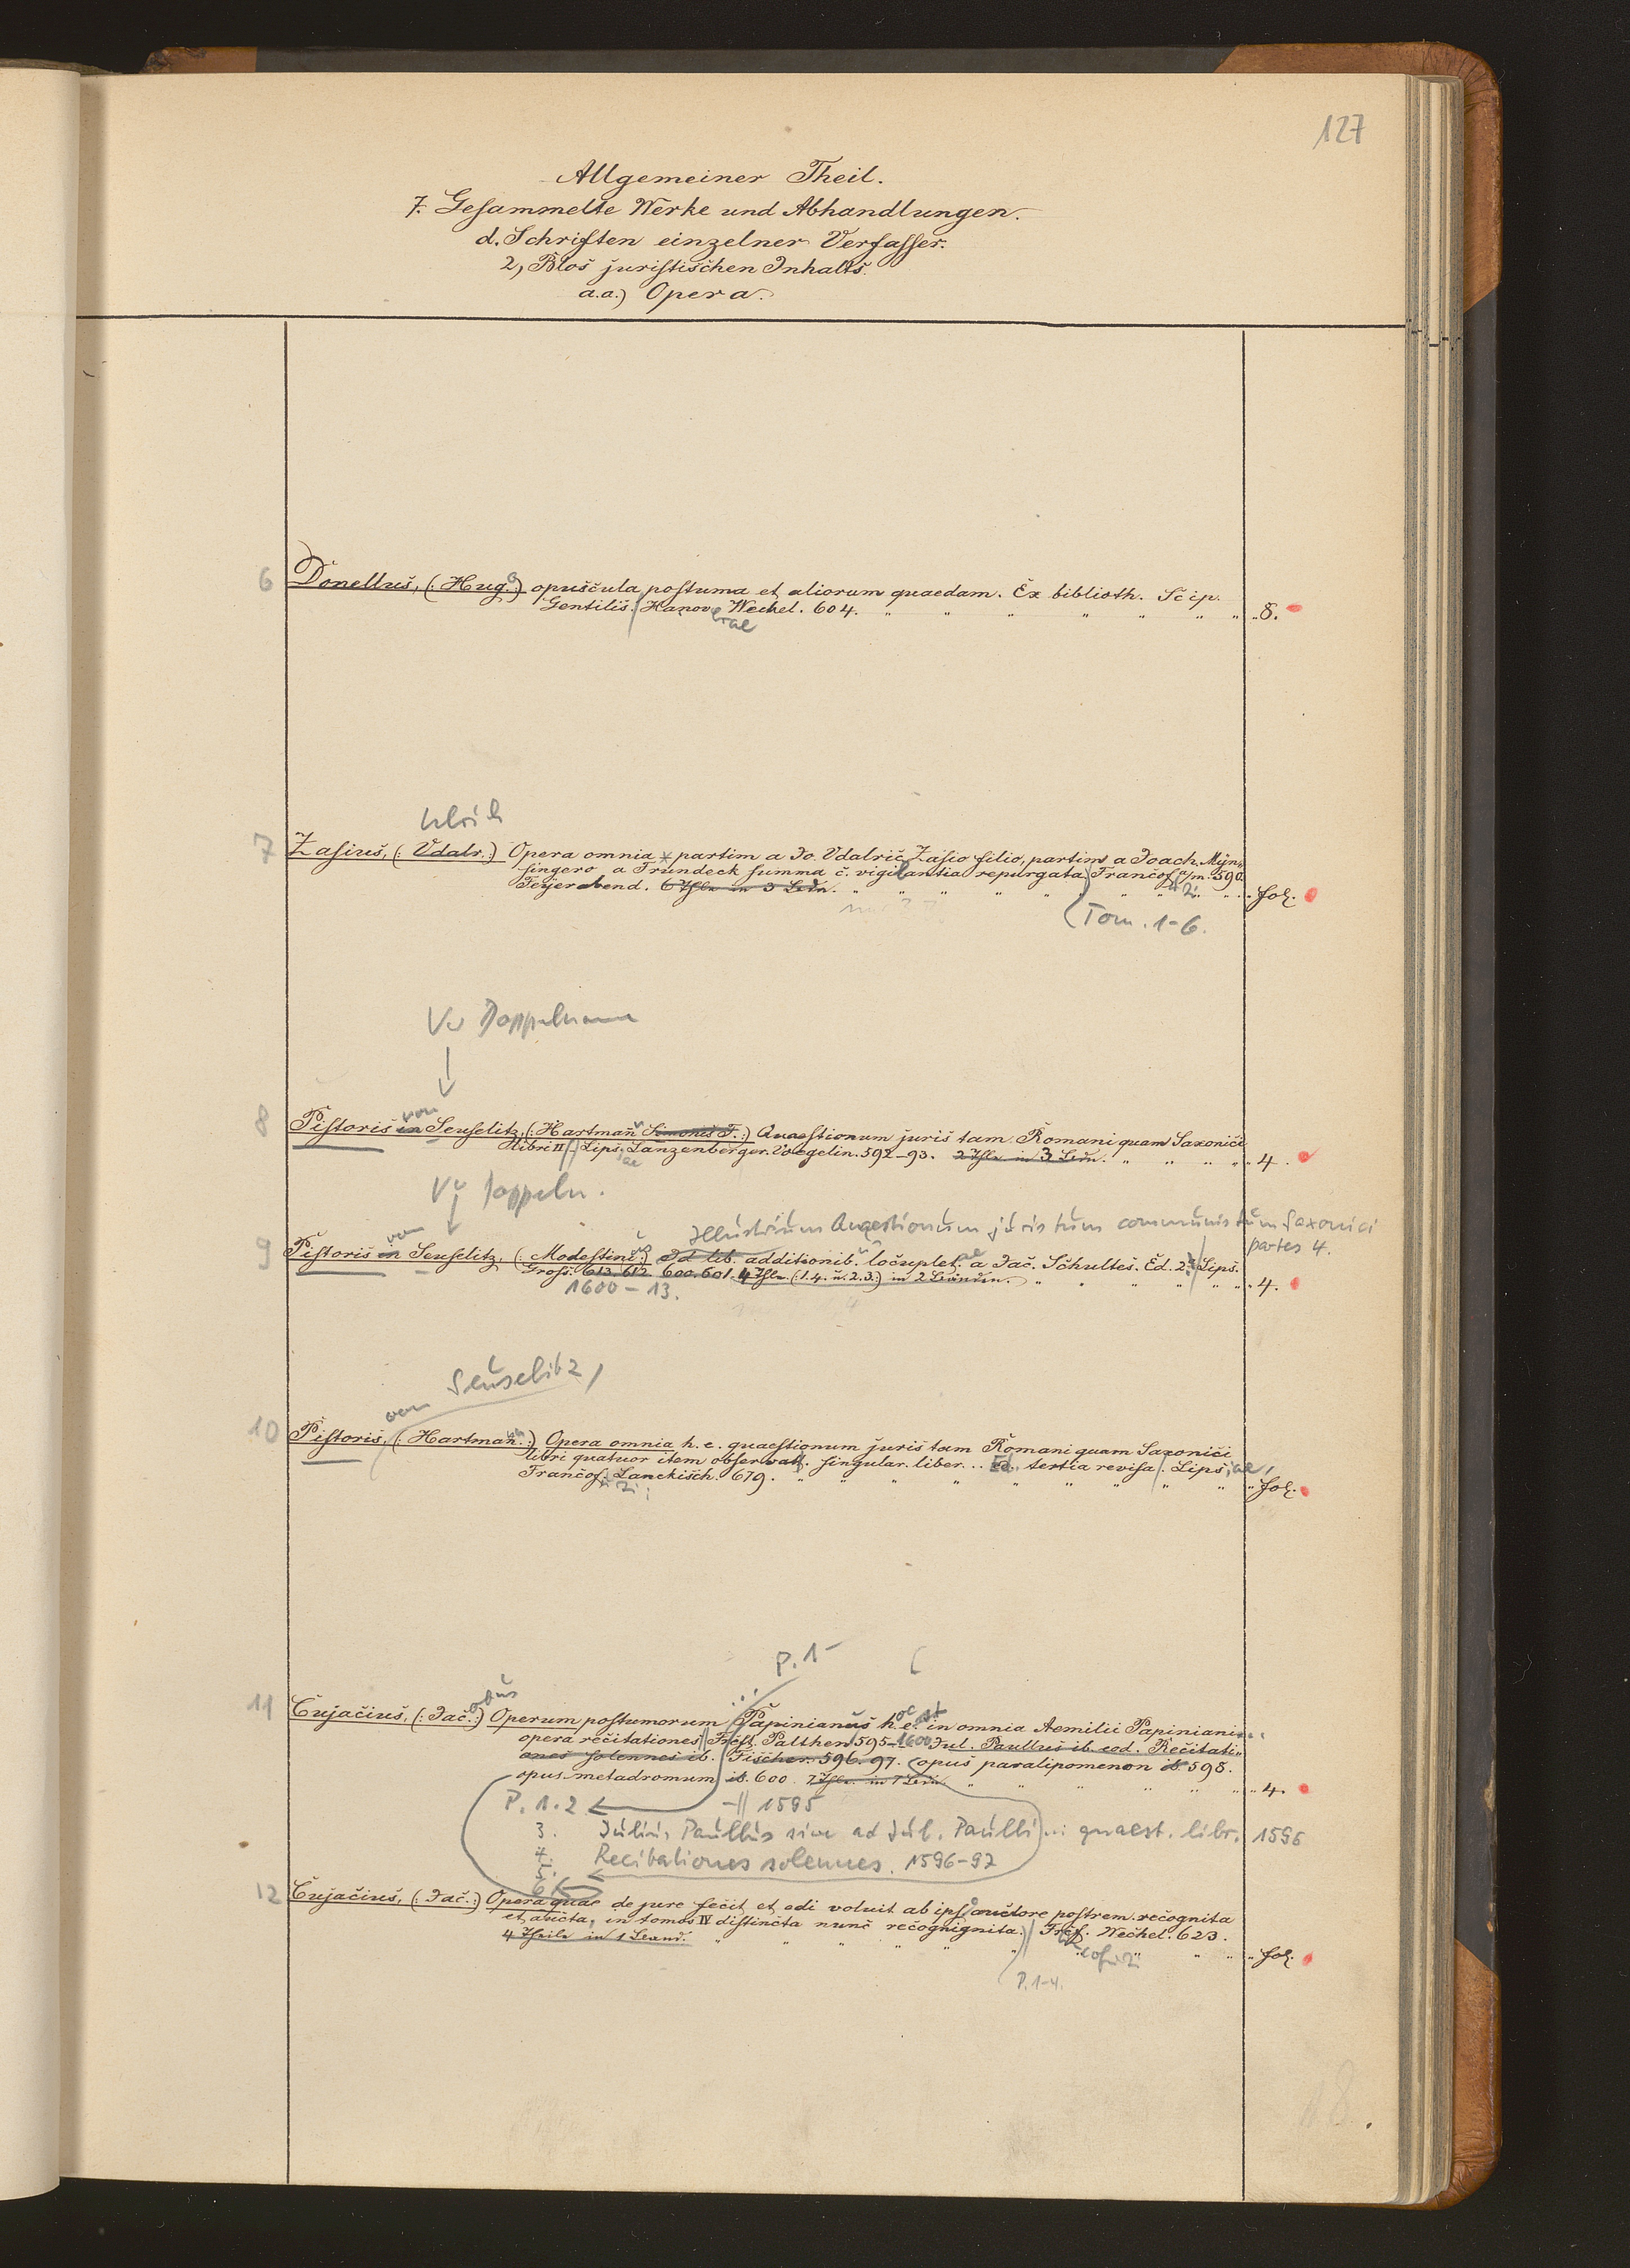 127
Allgemeiner Theil.
7. Gesammelte Werke und Abhandlungen.
d. Schriften einzelner Verfasser.
2, Blos juristischen Inhalts.
a.a.) Opera.
6 Donellus, (: Hugo :) opuscula postuma et aliorum quaedam. Ex biblioth. Scip.
Gentilis. Hanov. Wechel. 604. " " " " " " " 8.
iae
Ulrich
7 Zasius, (: Udalr. :) Opera omnia partim a Jo. Udalric Zasio filio, partim a Joach. Myn-
singero a Frundeck summa c. vigilantia repurgata. Francof. a/m. 590
Feyerabend. 6 Thle in 3 Bdn. " " " " " " fol.
(Tom. 1-6.
Vw Doppelname
↓
von
8 Pistoris in Seuselitz, (: Hartman Simonis F. :) Quaestionum juris tam Romani quam Saxonici
libri II. Lips. Lanzenberger. Voegelin. 592-93. " " " " 4.
ae
Vw Doppeln.
Illustrium Quaestionum juris tum communis tum Saxonici
partes 4.
von
9 Pistoris in Seuselitz, (: Modestinus :) Id lib. additionib. locuplet. a Jac. Schultes. Ed. 2. Lips.
Gross. 613. 612. 600. 601. 4 Thle. (: 1.4. u. 2.3. :) in 2 Bänden. " " " " " " 4.
1600-13.
Seuselitz,
von
10 Pistoris, (: Hartman :) Opera omnia h. e. quaestionum juris tam Romani quam Saxonici
libri quatuor item observatt. singular. liber... Ed. tertia revisa. Lips iae,
Francof. Lanckisch. 679. " " " " " " " " " fol.
P. 1-
11 Cujacius, (: Jac. :) Operum postumorum Papinianus h. e. in omnia Aemilii Papiniani
opera recitationes Frcft. Palthen 595-1600 Jul. Paullus ib. eod. Recitati-
ones solennes ib. Fischer. 596. 97. opus paralipomenon ib. 598.
opus metadromum ib. 600. " " " " " " 4.
P. 1.2 ← -|| 1595
3. Julius Paullus sive ad Jul. Paulli quaest. libr. 1596
4. Recitationes solennes. 1596-97
5. ←
6 ←
12 Cujacius, (: Jac. :) Opera quae de jure fecit et edi voluit ab ipso auctore postrem. recognita
et aucta, in tomos IV distincta nunc recognignita. Frcf. Wechel. 623.
4 Theile in 1 Band. " " " " " " " " fol.
P. 1-4.